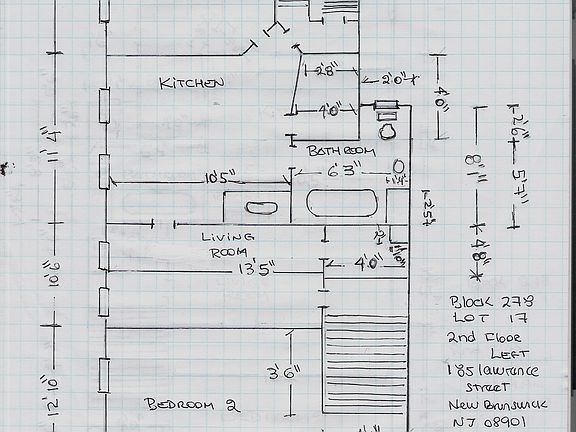 KITCHEN
2'8"
2'0"
4'0"
4'0"
2'6"
11'4"
BATHROOM
8'1"
5'7"
10'5"
6'3"
1'4"
2'5"
LIVING
ROOM
4'8"
10'6"
13'5"
4'0"
Block 278
LOT 17
2nd Floor
LEFT
185 lawrance
STREET
New Brunswick
NJ 08901
3'6"
12'10"
BEDROOM 2